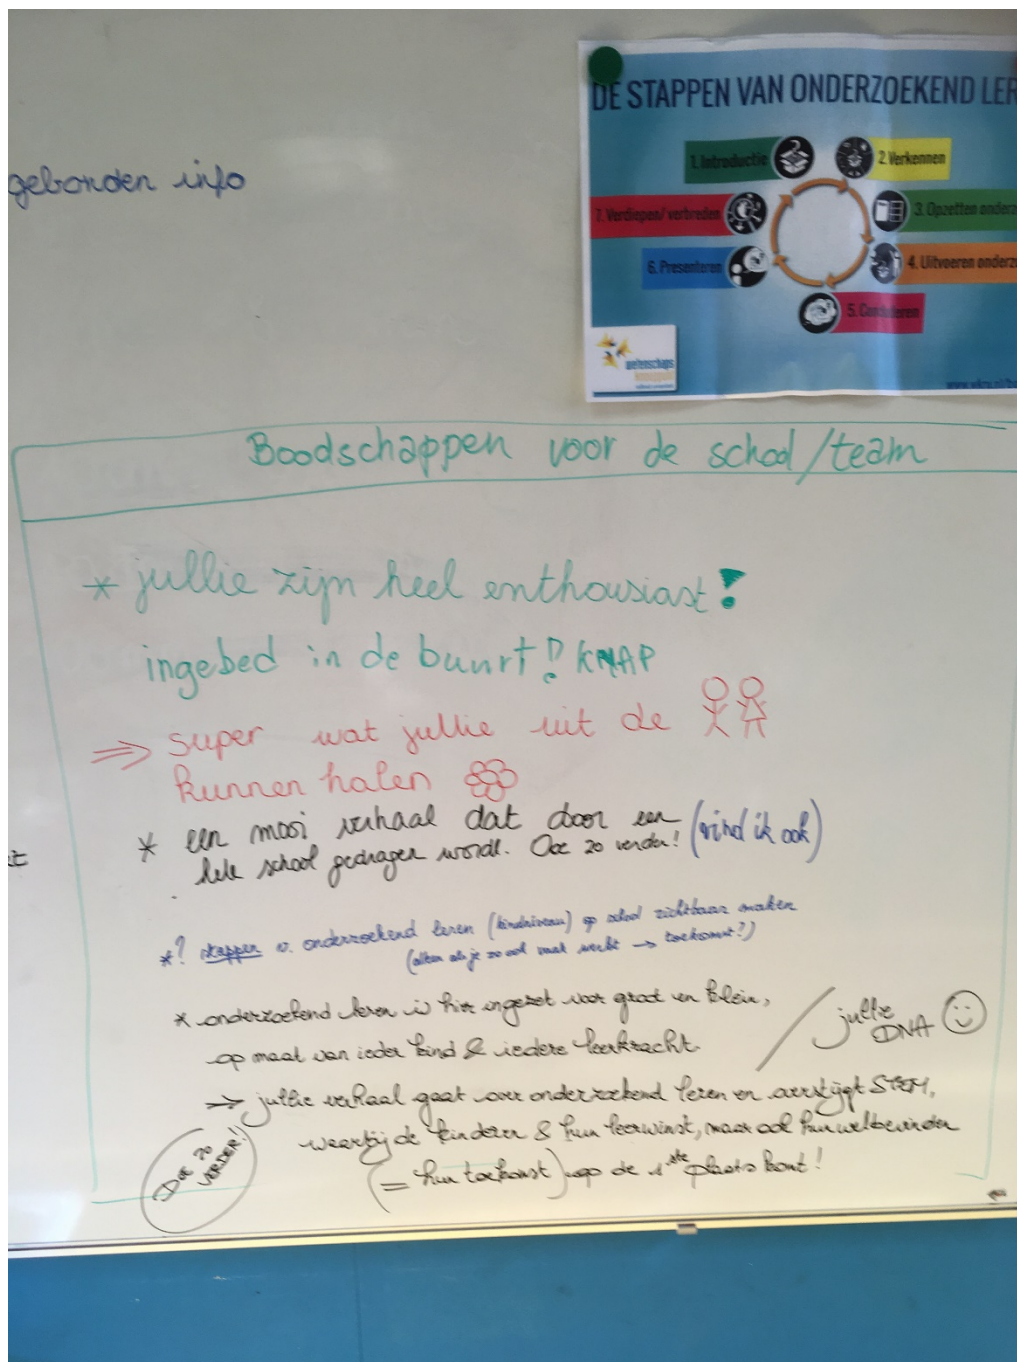 gebonden info
DE STAPPEN VAN ONDERZOEKEND LER
1. Introductie
2. Verkennen
3. Opzetten onderz
4. Uitvoeren onderzo
5. Concluderen
6. Presenteren
7. Verdiepen/ verbreden
wetenschaps
Boodschappen voor de school/team
* jullie zijn heel enthousiast!
ingebed in de buurt! KNAP
⇒ super wat jullie uit de
kunnen halen
* een mooi verhaal dat door een (vind ik ook)
hele school gedragen wordt. Doe zo verder!
*? stappen v. onderzoekend leren (kindniveau) op school zichtbaar maken
(alleen als je zo ook vaak werkt → toekomst?)
* onderzoekend leren is hier ingezet voor groot en klein,
op maat van ieder kind & iedere leerkracht.
/ jullie DNA
⇒ jullie verhaal gaat over onderzoekend leren en overstijgt STEM,
waarbij de kinderen & hun leerwinst, maar ook hun welbevinden
(= hun toekomst) op de 1ste plaats komt!
DOE ZO
VERDER!